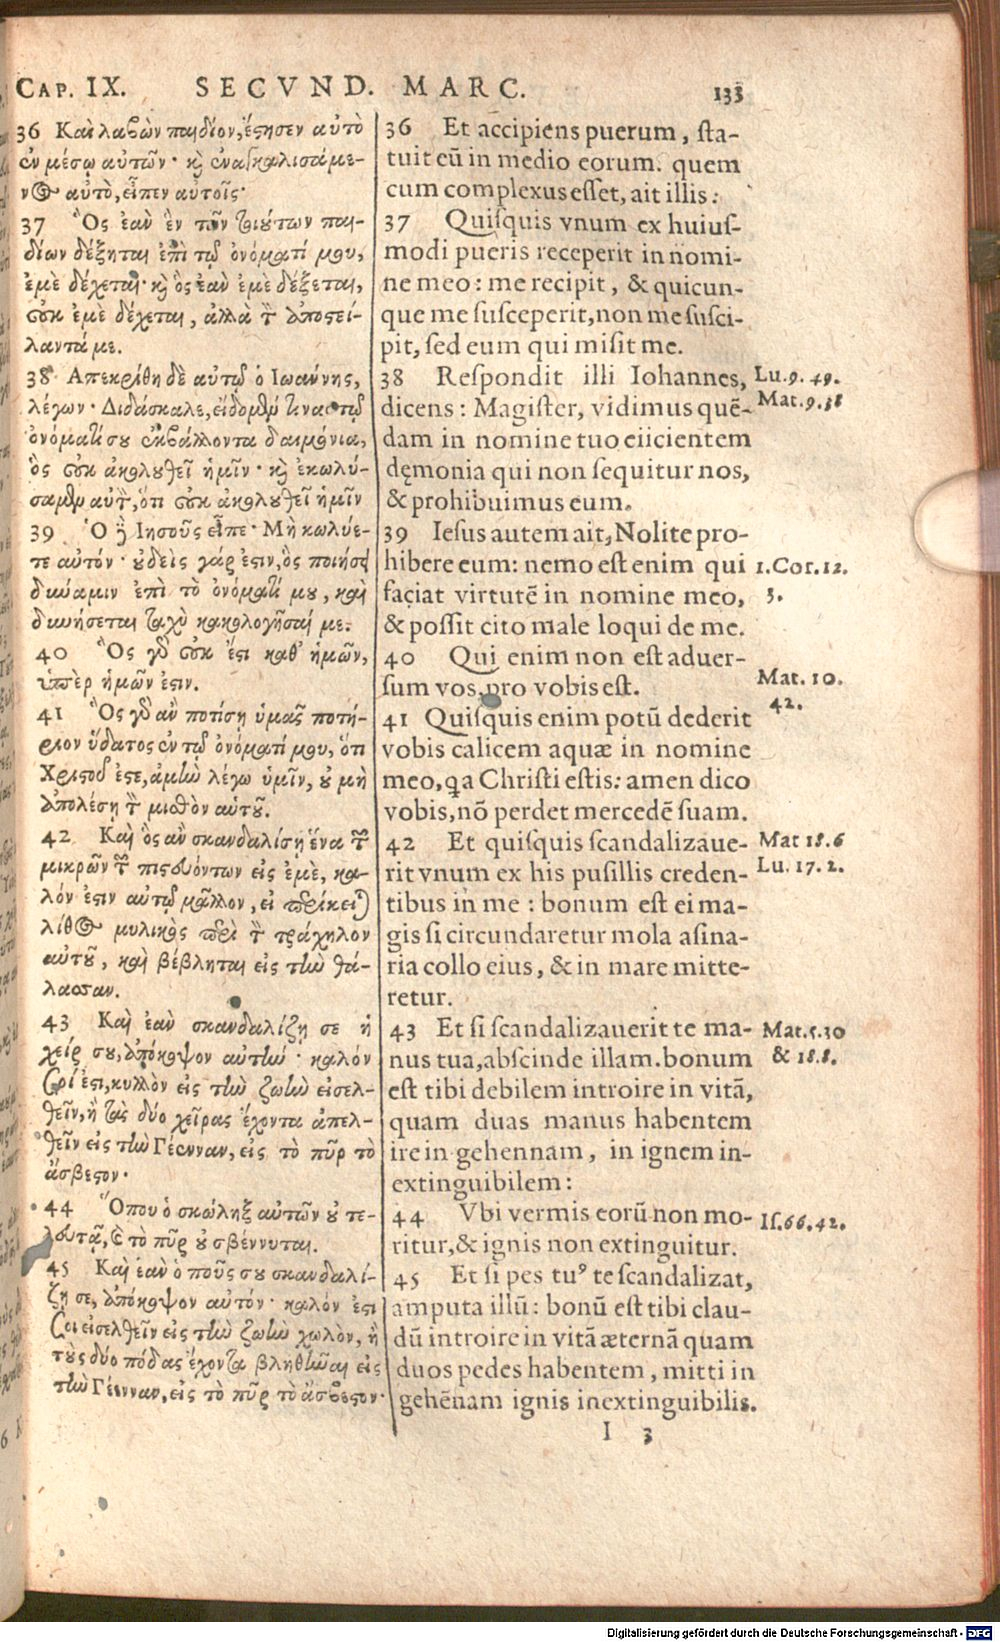 CAP. IX. SECVND. MARC. 133
36 Καὶ λαβὼν παιδίον, ἔστησεν αὐτὸ
ἐν μέσῳ αὐτῶν· καὶ ἐναγκαλισάμε-
νος αὐτὸ, εἶπεν αὐτοῖς·
37 Ὃς ἐὰν ἓν τῶν τοιούτων παι-
δίων δέξηται ἐπὶ τῷ ὀνόματί μου,
ἐμὲ δέχεται· καὶ ὃς ἐὰν ἐμὲ δέξεται,
οὐκ ἐμὲ δέχεται, ἀλλὰ τὸν ἀποστεί-
λαντά με.
38 Απεκρίθη δὲ αὐτῷ ὁ Ιωάννης,
λέγων· Διδάσκαλε, εἴδομέν τινα τῷ
ὀνόματί σου ἐκβάλλοντα δαιμόνια,
ὃς οὐκ ἀκολουθεῖ ἡμῖν· καὶ ἐκωλύ-
σαμεν αὐτὸν, ὅτι οὐκ ἀκολουθεῖ ἡμῖν
39 Ὁ δὲ Ιησοῦς εἶπε· Μὴ κωλύε-
τε αὐτόν· οὐδεὶς γάρ ἐστιν, ὃς ποιήσει
δύναμιν ἐπὶ τὸ ὀνόματί μου, καὶ
δυνήσεται ταχὺ κακολογῆσαί με.
40 Ὃς γὰρ οὐκ ἔστι καθ' ἡμῶν,
ὑπὲρ ἡμῶν ἐστιν.
41 Ὃς γὰρ ἂν ποτίσῃ ὑμᾶς ποτή-
ριον ὕδατος ἐν τῷ ὀνόματί μου, ὅτι
Χριστοῦ ἐστε, ἀμὴν λέγω ὑμῖν, οὐ μὴ
ἀπολέσῃ τὸν μισθὸν αὑτοῦ.
42 Καὶ ὃς ἂν σκανδαλίσῃ ἕνα τῶν
μικρῶν τῶν πιστευόντων εἰς ἐμὲ, κα-
λόν ἐστιν αὐτῷ μᾶλλον, εἰ περίκειται
λίθος μυλικὸς περὶ τὸν τράχηλον
αὐτοῦ, καὶ βέβληται εἰς τὴν θά-
λασσαν.
43 Καὶ ἐὰν σκανδαλίζῃ σε ἡ
χείρ σου, ἀπόκοψον αὐτήν· καλόν
σοί ἐστι, κυλλὸν εἰς τὴν ζωὴν εἰσελ-
θεῖν, ἢ τὰς δύο χεῖρας ἔχοντα ἀπελ-
θεῖν εἰς τὴν Γέενναν, εἰς τὸ πῦρ τὸ
ἄσβεστον·
44 Ὅπου ὁ σκώληξ αὐτῶν οὐ τε-
λευτᾷ, καὶ τὸ πῦρ οὐ σβέννυται.
45 Καὶ ἐὰν ὁ ποῦς σου σκανδαλί-
ζῃ σε, ἀπόκοψον αὐτόν· καλόν ἐστι
σοι εἰσελθεῖν εἰς τὴν ζωὴν χωλὸν, ἢ
τοὺς δύο πόδας ἔχοντα βληθῆναι εἰς
τὴν Γέενναν, εἰς τὸ πῦρ τὸ ἄσβεστον·
36 Et accipiens puerum, ſta-
tuit eū in medio eorum. quem
cum complexus eſſet, ait illis:
37 Quiſquis vnum ex huiuſ-
modi pueris receperit in nomi-
ne meo: me recipit, & quicun-
que me ſuſceperit, non me ſuſci-
pit, ſed eum qui miſit me.
38 Reſpondit illi Iohannes,
dicens: Magiſter, vidimus quē-
dam in nomine tuo eiicientem
dęmonia qui non ſequitur nos,
& prohibuimus eum.
39 Ieſus autem ait, Nolite pro-
hibere eum: nemo eſt enim qui
faciat virtutē in nomine meo,
& poſſit cito male loqui de me.
40 Qui enim non eſt aduer-
ſum vos, pro vobis eſt.
41 Quiſquis enim potū dederit
vobis calicem aquæ in nomine
meo, qa Chriſti eſtis: amen dico
vobis, nō perdet mercedē ſuam.
42 Et quiſquis ſcandalizaue-
rit vnum ex his puſillis creden-
tibus in me: bonum eſt ei ma-
gis ſi circundaretur mola aſina-
ria collo eius, & in mare mitte-
retur.
43 Et ſi ſcandalizauerit te ma-
nus tua, abſcinde illam. bonum
eſt tibi debilem introire in vitā,
quam duas manus habentem
ire in gehennam, in ignem in-
extinguibilem:
44 Vbi vermis eorū non mo-
ritur, & ignis non extinguitur.
45 Et ſi pes tuꝰ te ſcandalizat,
amputa illū: bonū eſt tibi clau-
dū introire in vitā æternā quam
duos pedes habentem, mitti in
gehēnam ignis inextinguibilis.
Lu. 9. 49.
Mat. 9. 38
1. Cor. 12.
3.
Mat. 10.
42.
Mat 18. 6
Lu. 17. 2.
Mat. 5. 30
& 18. 8.
Iſ. 66. 42.
I 3
Digitalisierung gefördert durch die Deutsche Forschungsgemeinschaft - DFG